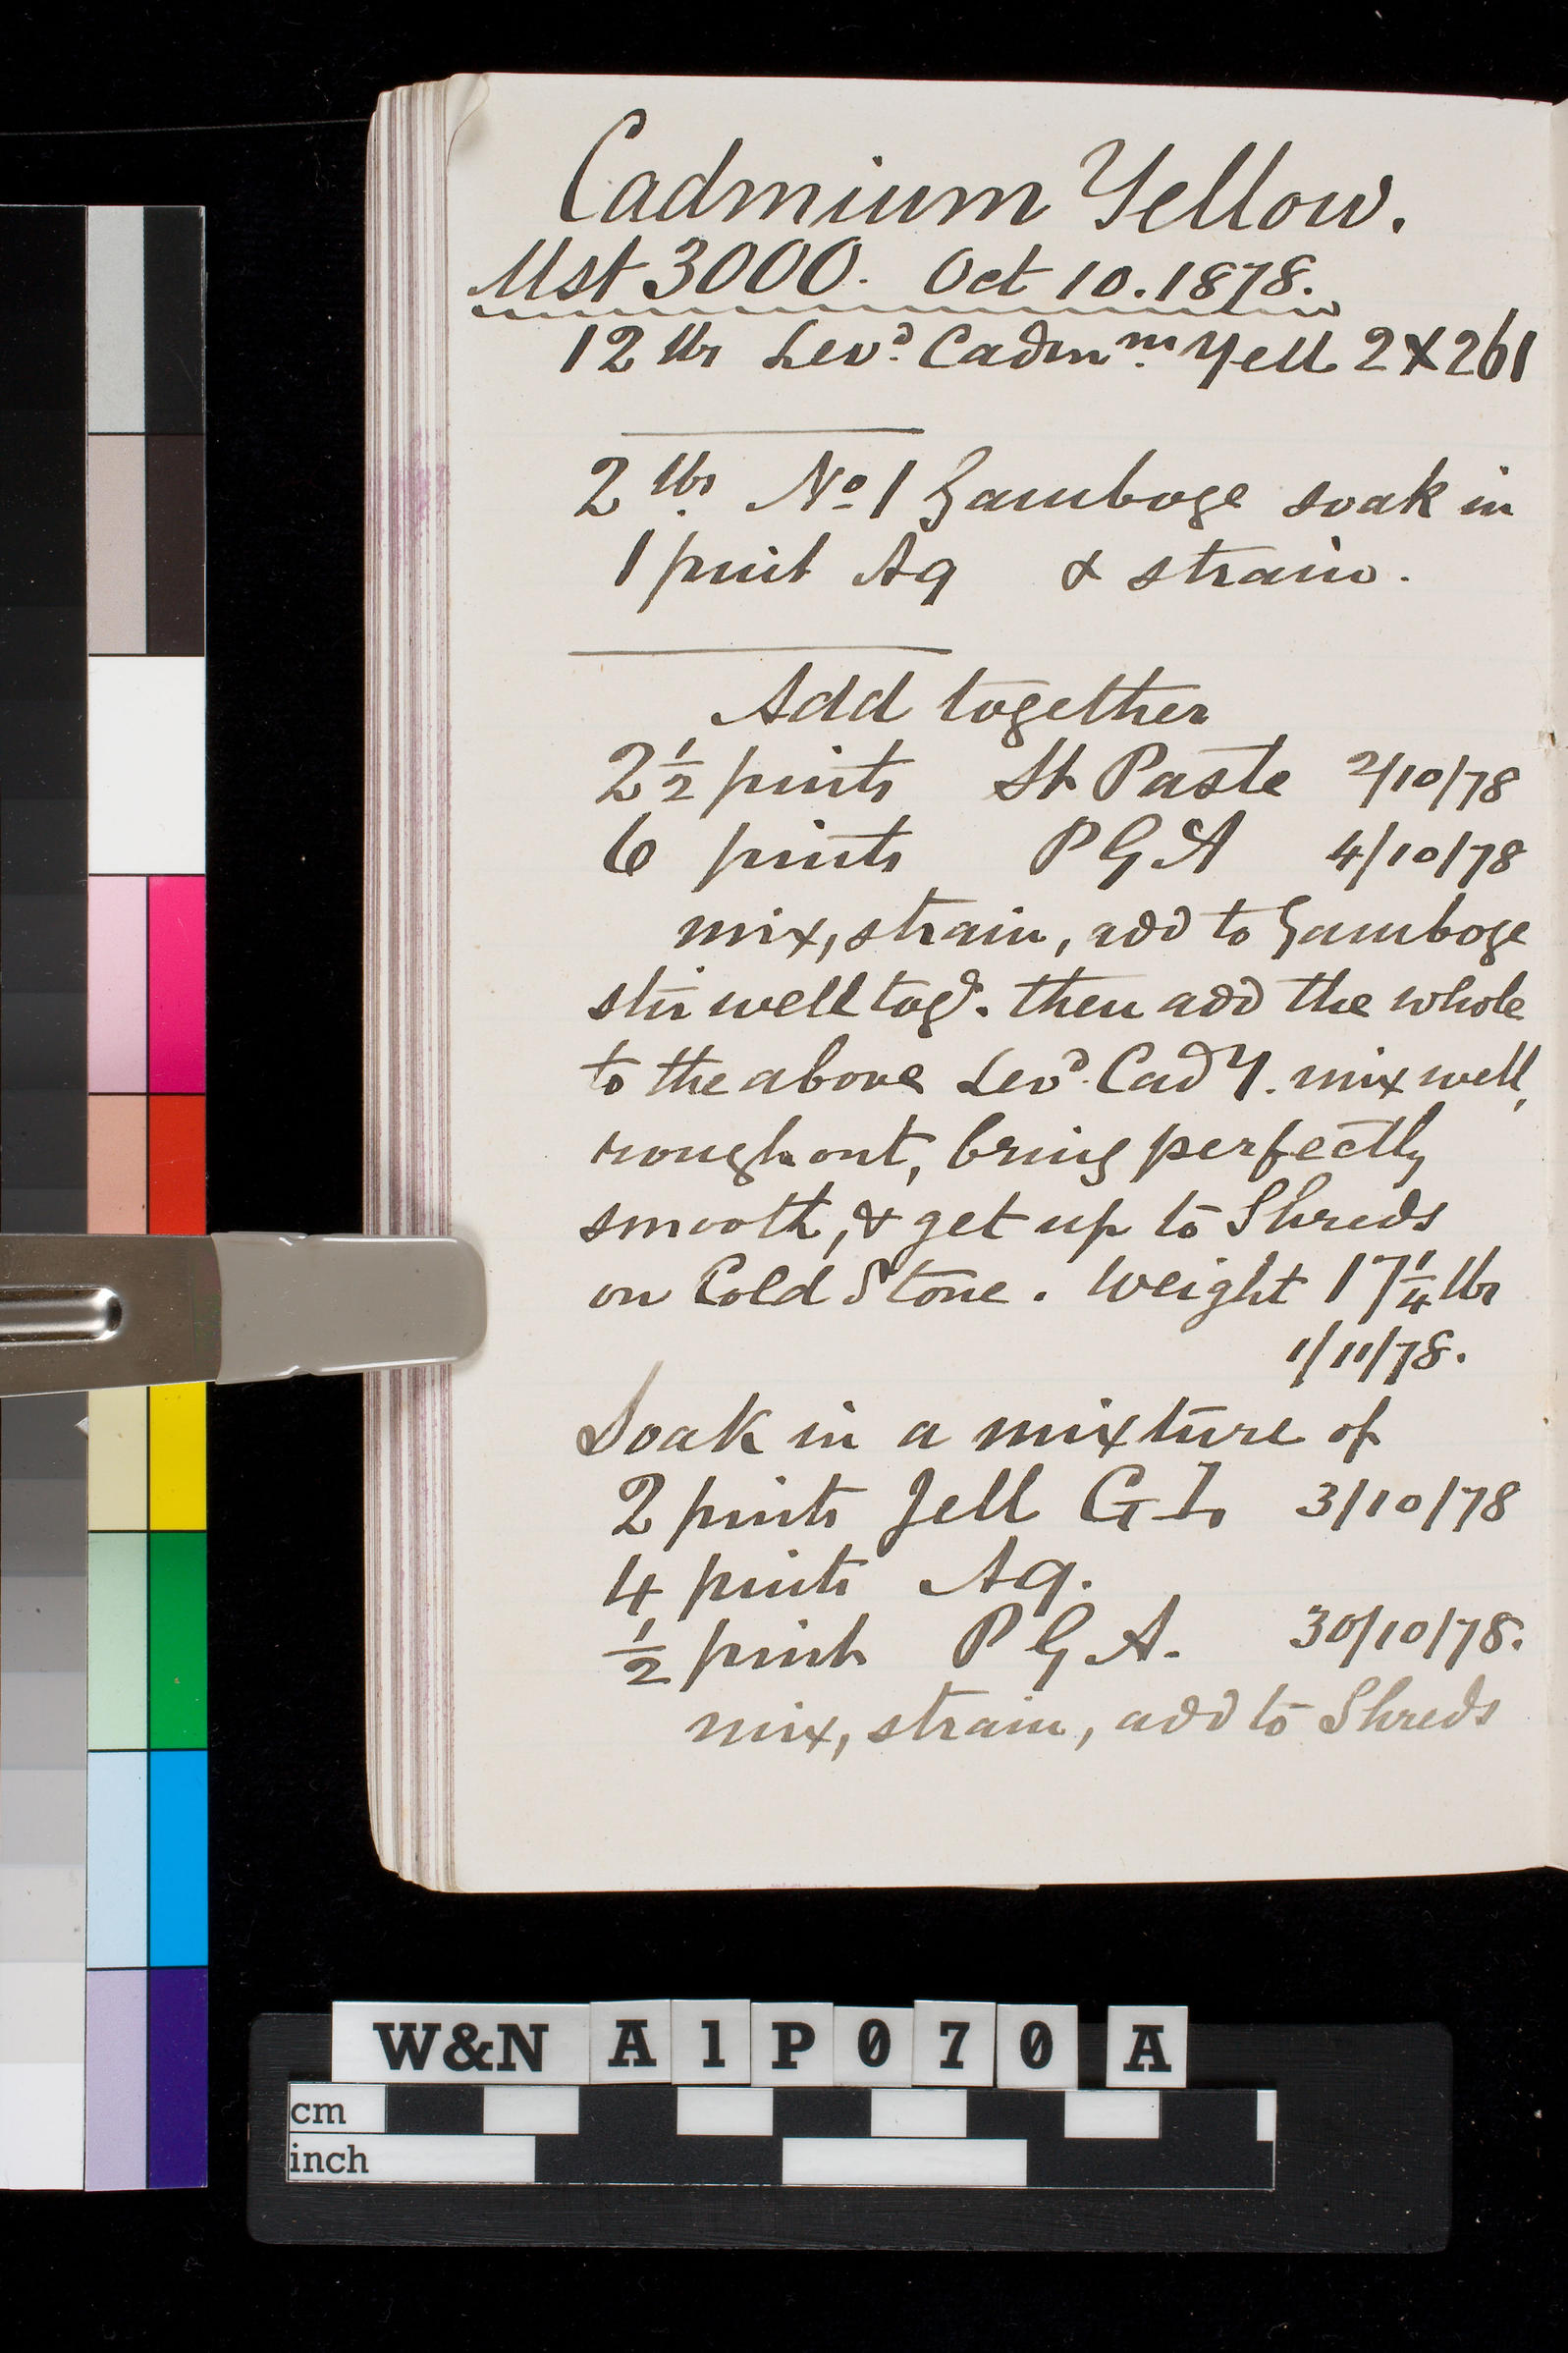 Cadmium Yellow.
Mst 3000. Oct 10. 1878.
12 lbs Levd. Cadmm. Yell 2X261
2 lbs. No 1 Gamboge soak in
1 pint Aq & strain.
Add together
2½ pints St Paste 2/10/78
6 pints P G A 4/10/78
mix, strain, add to Gamboge
stir well togr. then add the whole
to the above Levd. Cad Y. mix well,
rough out, bring perfectly
smooth, & get up to Shreds
on Cold Stone. Weight 17¼ lbs
1/11/78.
Soak in a mixture of
2 pints Jell G I 3/10/78
4 pints Aq.
½ pint P G A. 30/10/78.
mix, strain, add to Shreds
W&N A1P070 A
cm
inch